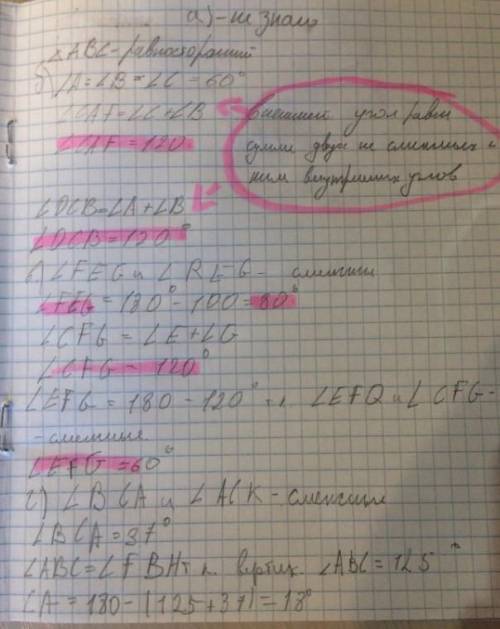 а) - не знаю
△ABC - равносторонний
б) ∠A = ∠B = ∠C = 60°
∠CAF = ∠C + ∠B
∠CAF = 120
внешний угол равен
сумме двух не смежных с
ним внутренних углов
∠DCB = ∠A + ∠B
∠DCB = 120°
в) ∠FEG и ∠REG - смежные
∠FEG = 180° - 100 = 80°
∠CFG = ∠E + ∠G
∠CFG - 120°
∠EFG = 180 - 120° т.к. ∠EFQ и ∠CFG -
- смежные
∠EFG = 60°
г) ∠BCA и ∠ACK - смежные
∠BCA = 37°
∠ABC = ∠FBH т.к. вертик. ∠ABC = 125°
∠A = 180 - (125 + 37) = 18°